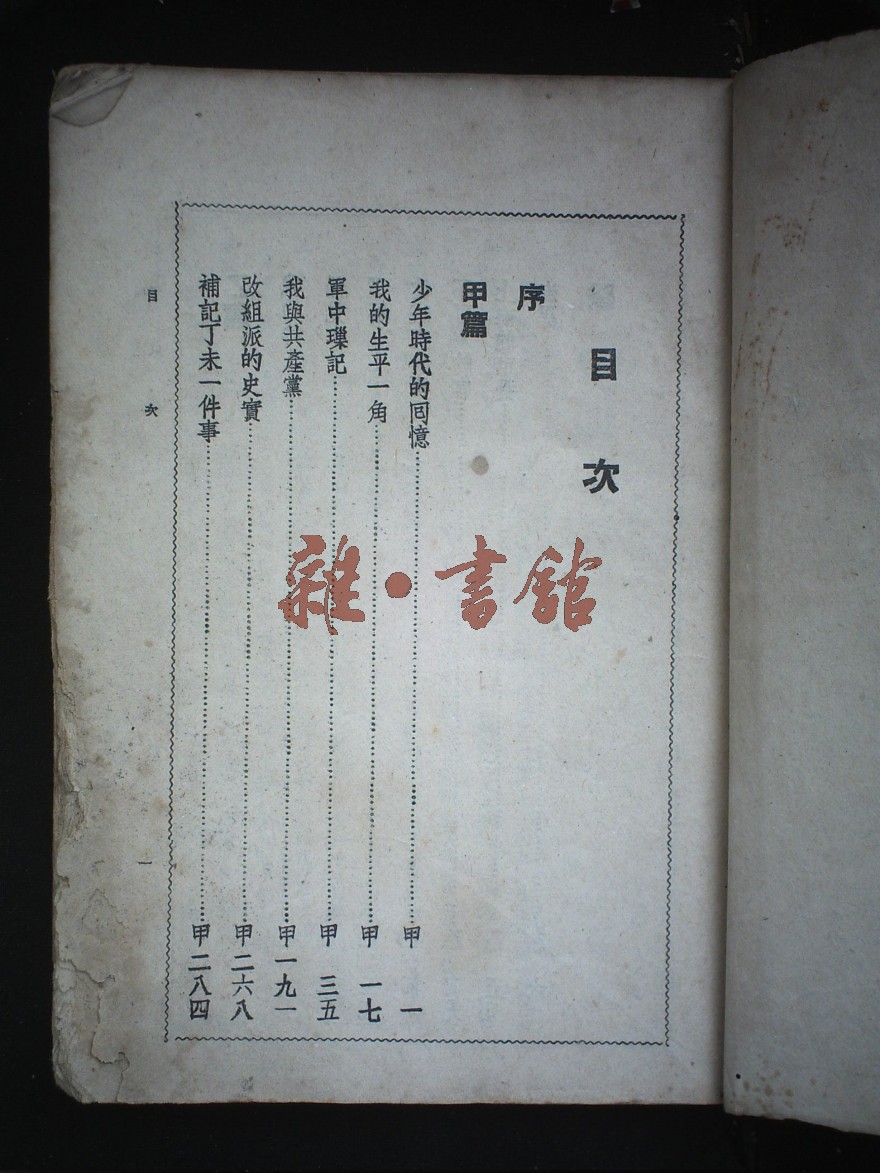 目次
序
甲篇
少年時代的囘憶……甲一
我的生平一角……甲一七
軍中瑣記……甲三五
我與共產黨……甲一九一
改組派的史實……甲二六八
補記丁未一件事……甲二八四
目次 一
雜·書舘